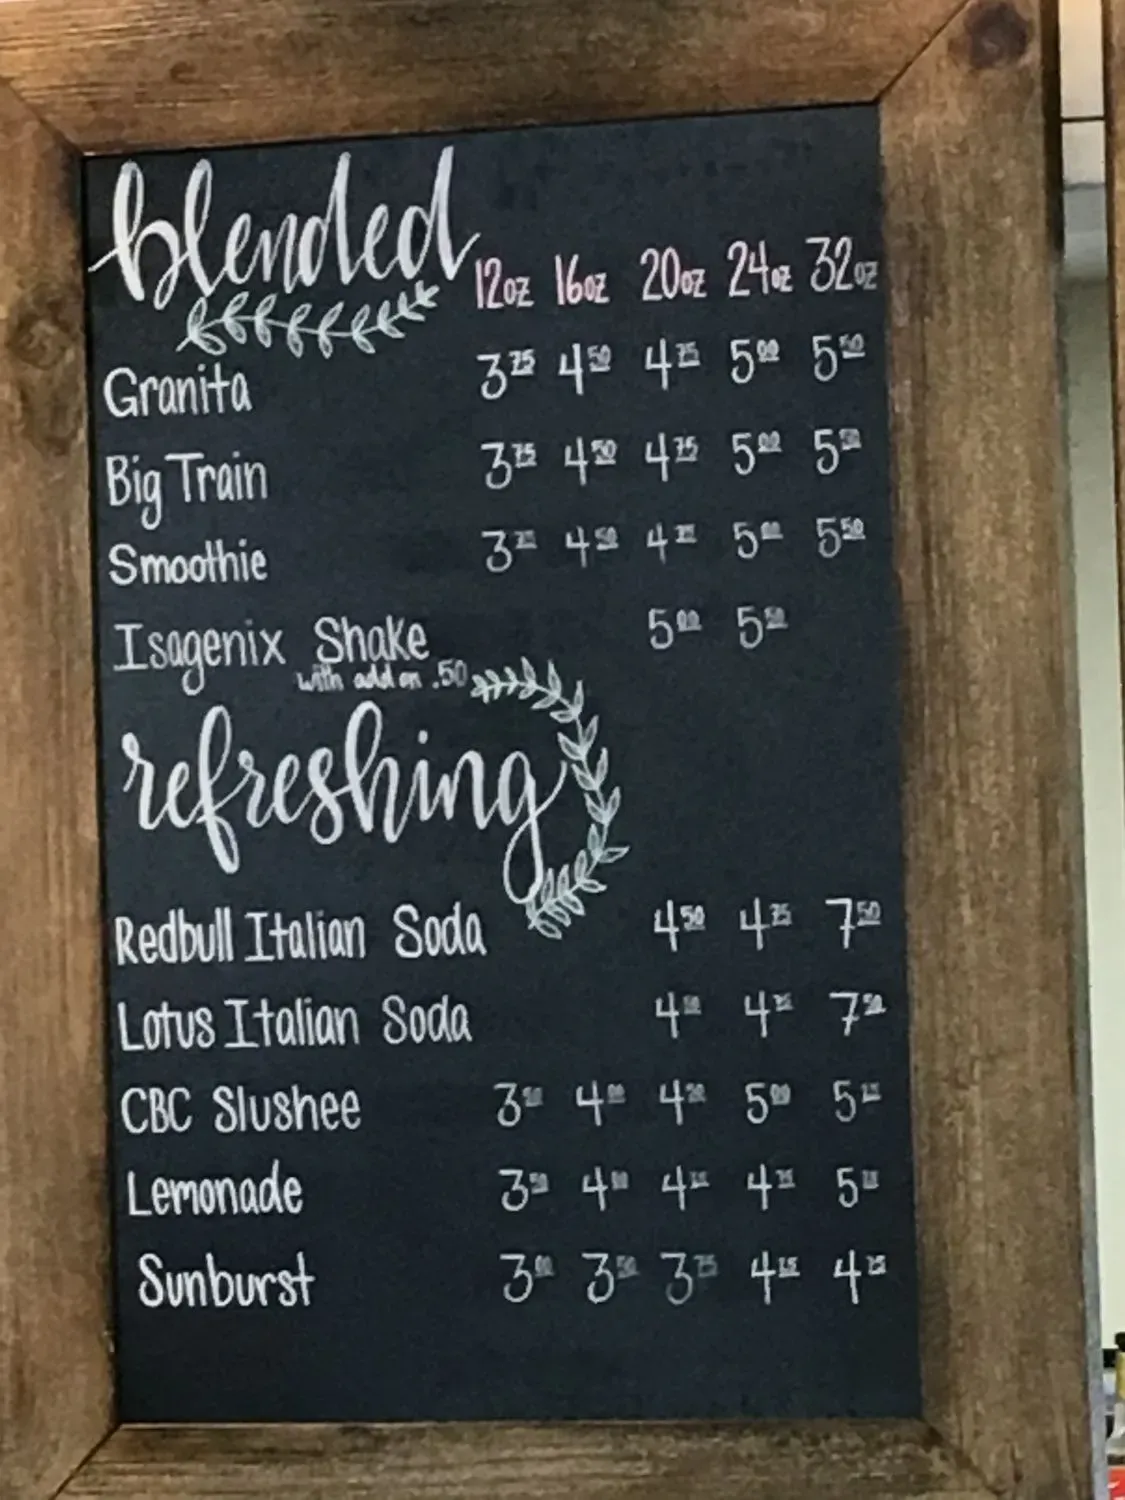 blended
12oz 16oz 20oz 24oz 32oz
Granita 3.75 4.50 4.75 5.00 5.50
Big Train 3.75 4.50 4.75 5.00 5.50
Smoothie 3.75 4.50 4.75 5.00 5.50
Isagenix Shake 5.00 5.50
with add on .50
refreshing
Redbull Italian Soda 4.50 4.75 7.50
Lotus Italian Soda 4.50 4.75 7.50
CBC Slushee 3.50 4.00 4.50 5.00
Lemonade 3.50 4.00 4.75
Sunburst 3.00 3.50 3.75 4.25 4.75